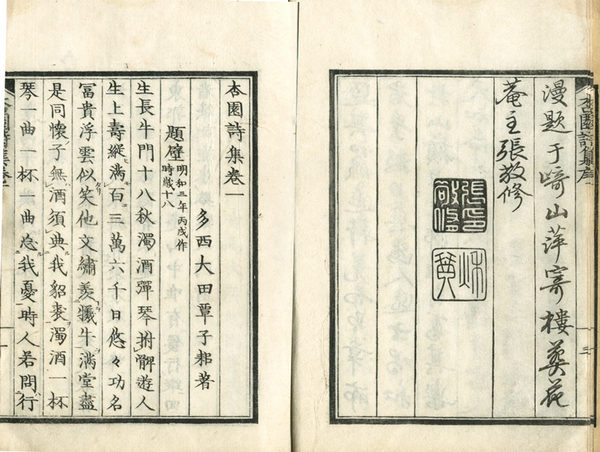 杏園詩集序
三
漫题于崎山萍寄樓葵花
菴主張敬修
張印
敬修
杏園詩集卷一
多西大田覃子耜著
題壁 明和三年丙戌作
時歳十八
生長牛門十八秋濁酒彈琴拊髀遊人
生上壽縱滿百三萬六千日悠々功名
冨貴浮雲似笑他文繡羨犠牛滿堂盡
是同懷子無酒須典我貂裘濁酒一杯
琴一曲一杯一曲忘我憂時人若問行
杏園詩集卷一
一